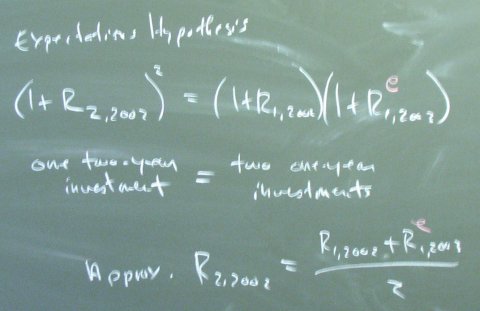 Expectations Hypothesis
(1+R₂,₂₀₀₂)² = (1+R₁,₂₀₀₂)(1+Rᵉ₁,₂₀₀₃)
one two-year = two one-year
investment investments
Approx. R₂,₂₀₀₂ = (R₁,₂₀₀₂ + Rᵉ₁,₂₀₀₃) / 2